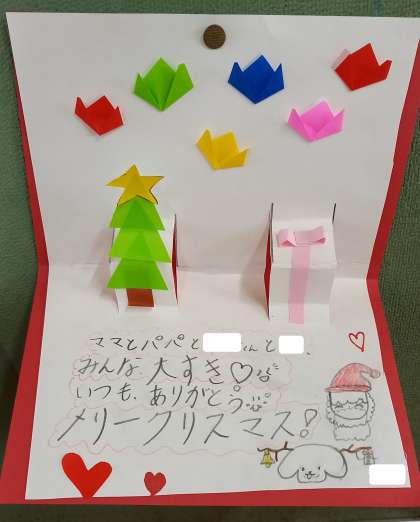 ママとパパとくんと、
みんな、大すき♡
いつも、ありがとう
メリークリスマス!